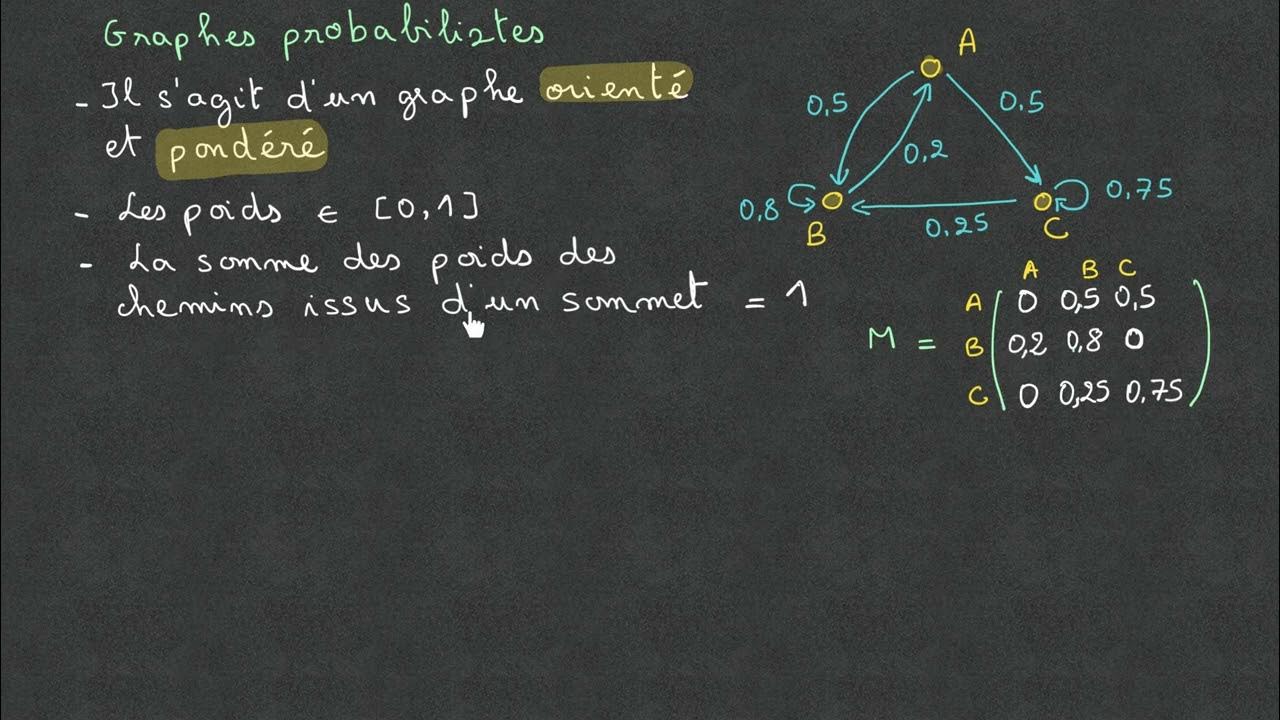 Graphes probabilistes
- Il s'agit d'un graphe orienté
et pondéré
- Les poids ∈ [0,1]
- La somme des poids des
chemins issus d'un sommet = 1
A
0,5 0,5
0,2
0,8 0,75
B 0,25 C
A B C
A 0 0,5 0,5
M = B 0,2 0,8 0
C 0 0,25 0,75